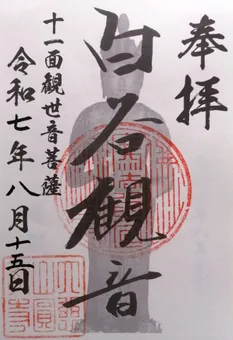 奉拝
白石観音
十一面観世音菩薩
令和七年八月十五日